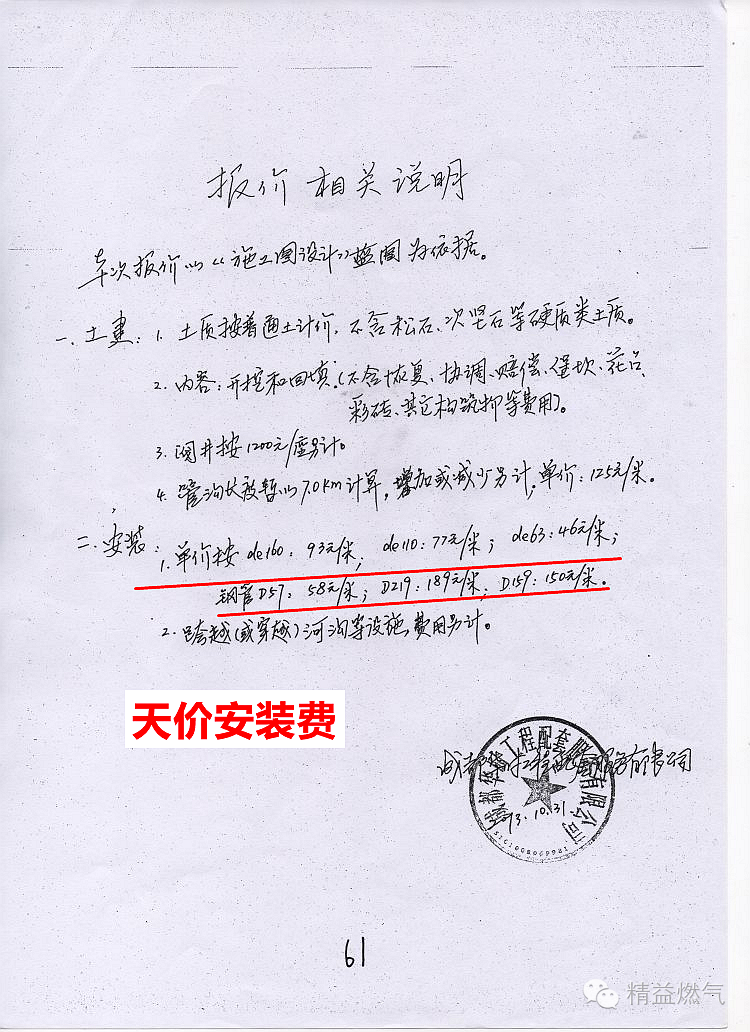 报价相关说明
本次报价以《施工图设计》蓝图为依据。
一、土建：1. 土质按普通土计价，不含松石、次坚石等硬质类土质。
2. 内容：开挖和回填。（不含恢复、协调、赔偿、堡坎、花台、
彩砖、其它构筑物等费用）。
3. 阀井按1200元/座另计。
4. 管沟长度暂以7.0km计算，增加或减少另计，单价：125元/米。
二、安装：
1. 单价按de160：93元/米；de110：77元/米；de63：46元/米；
钢管D57：58元/米；D219：189元/米；D159：150元/米。
2. 跨越（或穿越）河沟等设施，费用另计。
天价安装费
成都 工程配套服务有限公司
成都 工程配套 有限公司
13.10.31.
61
精益燃气